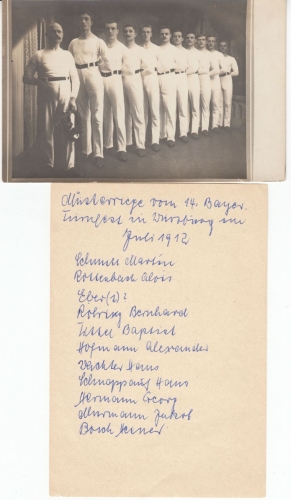 Musterriege vom 14. Bayer.
Turnfest in Würzburg im
Juli 1912
Schmitt Martin
Rottenbach Alois
Eber(t)?
Röhring Bernhard
Baptist
Hofmann Alexander
Vachter Hans
Schnappauf Hans
Hermann Georg
Murmann Jakob
Bosch